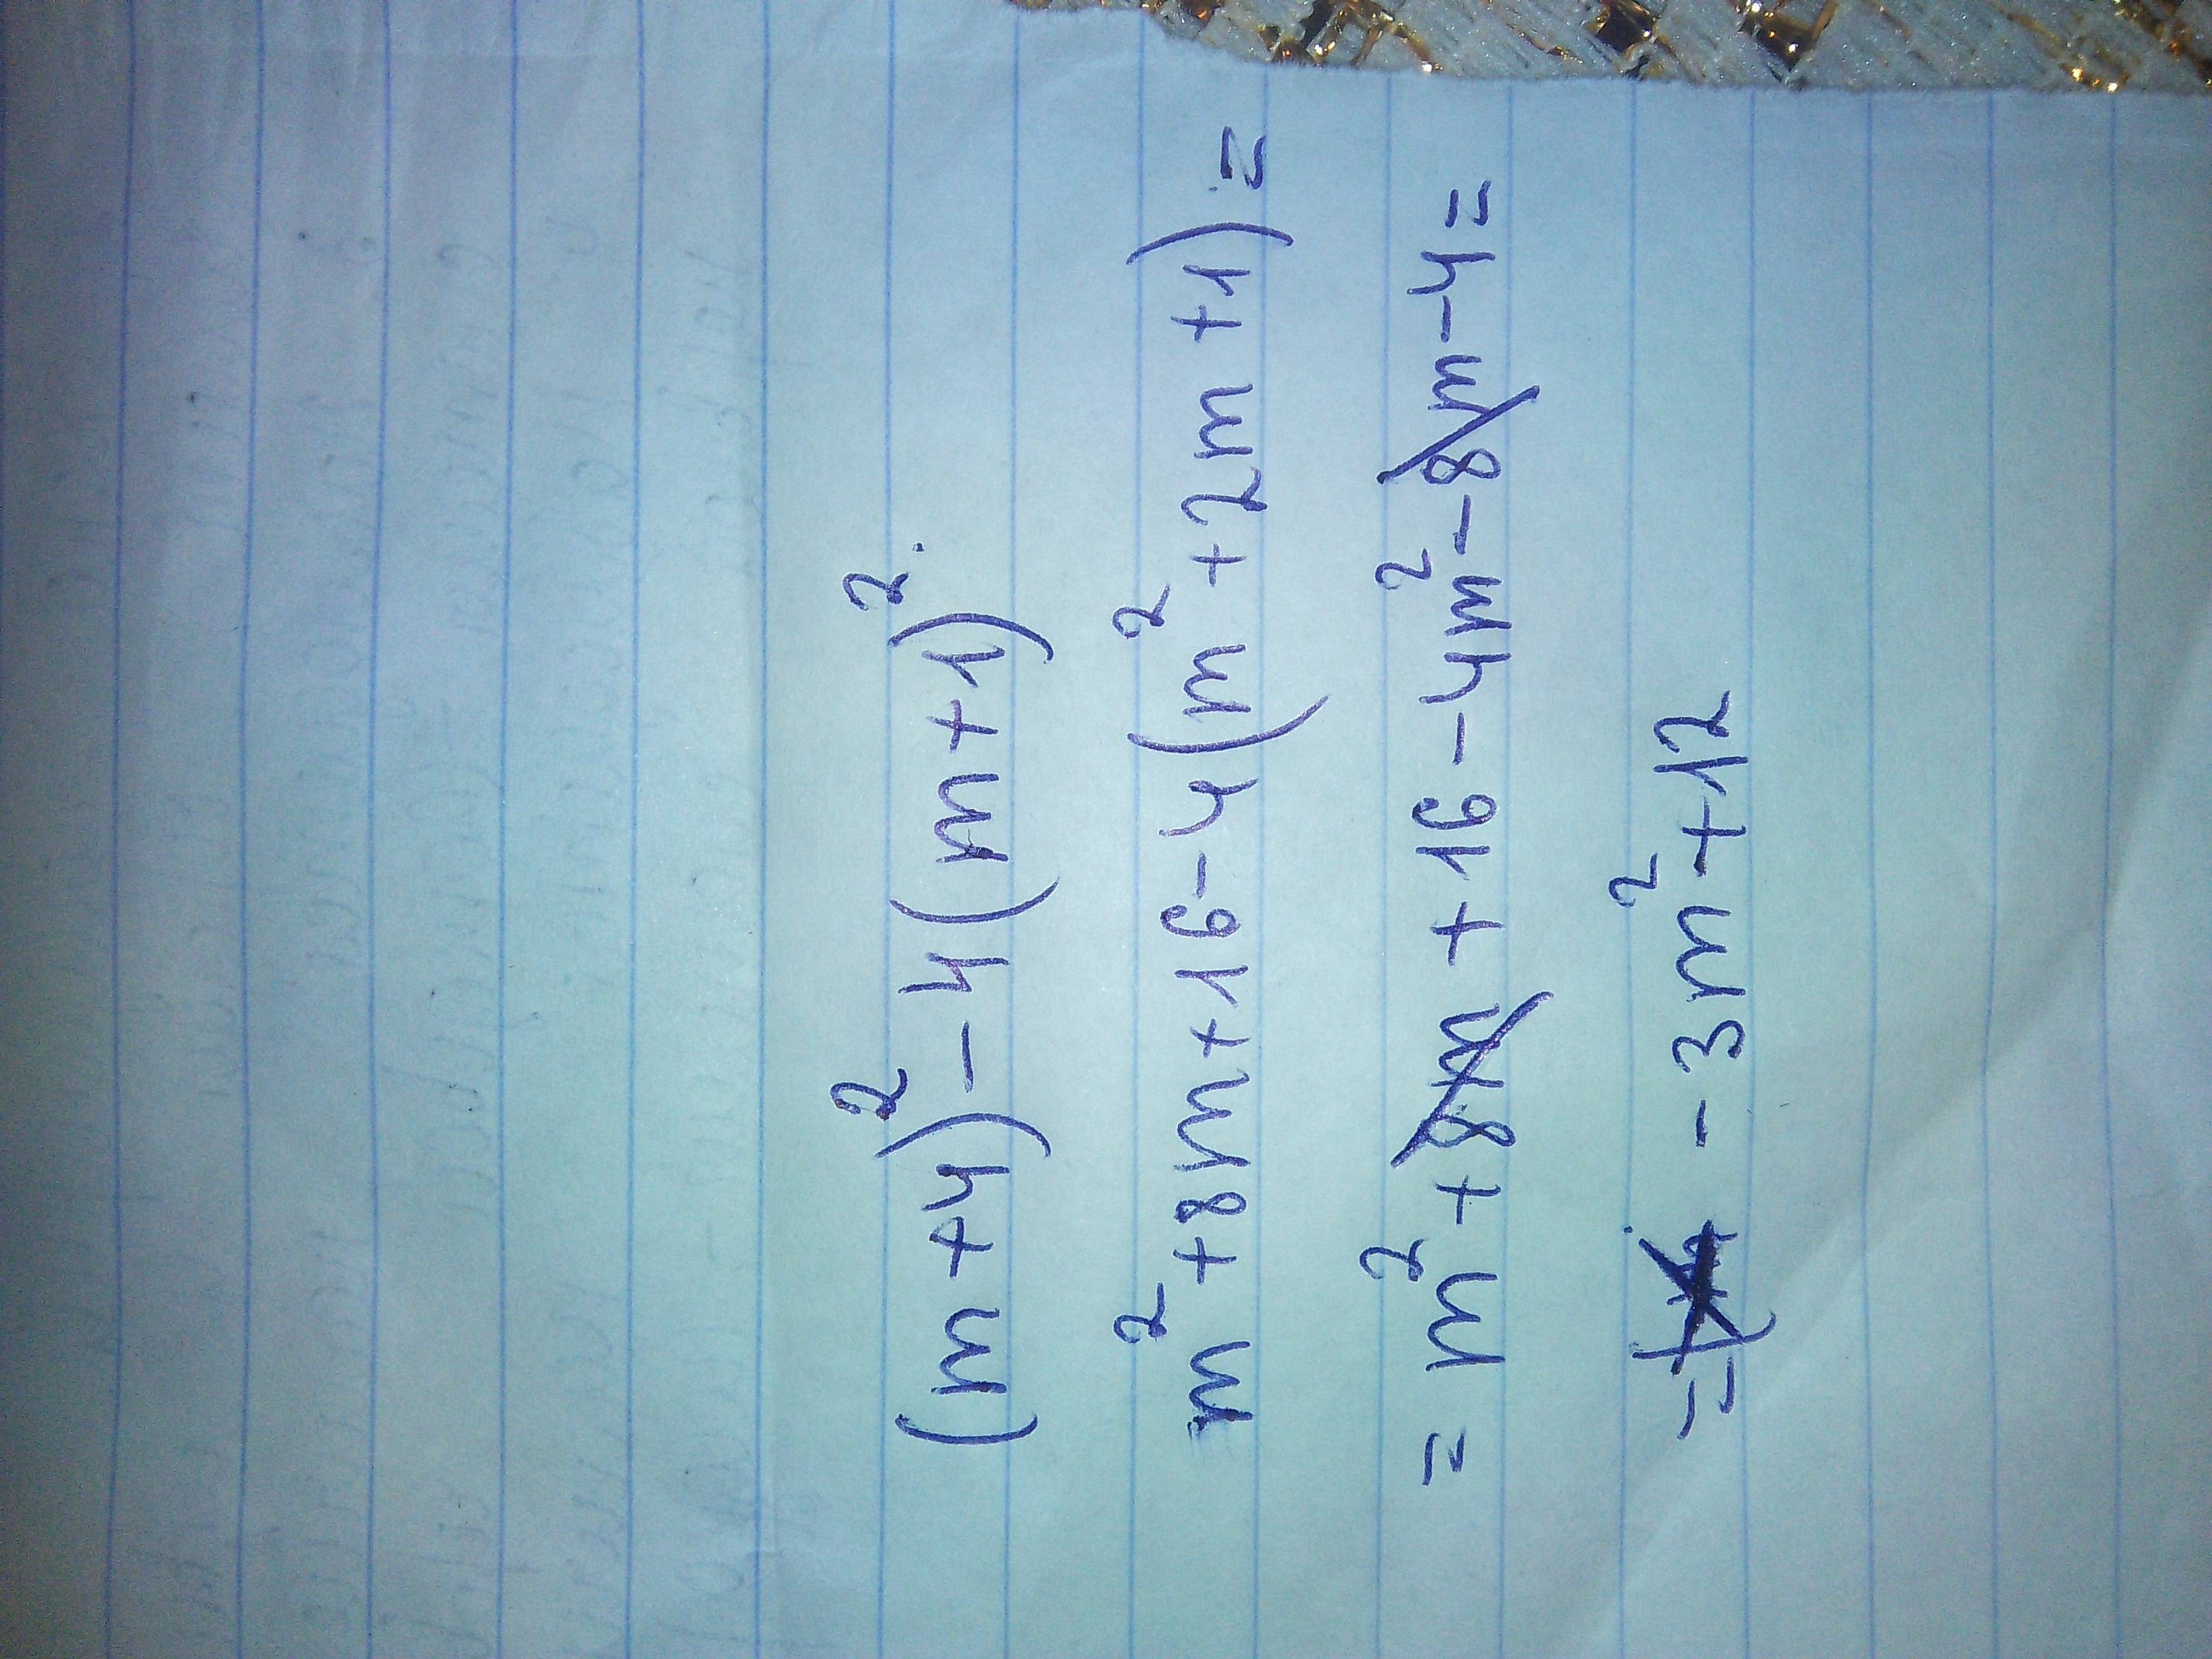 (m+4)² - 4(m+1)².
m² + 8m + 16 - 4(m² + 2m + 1) =
= m² + 8m + 16 - 4m² - 8m - 4 =
= - 3m² + 12